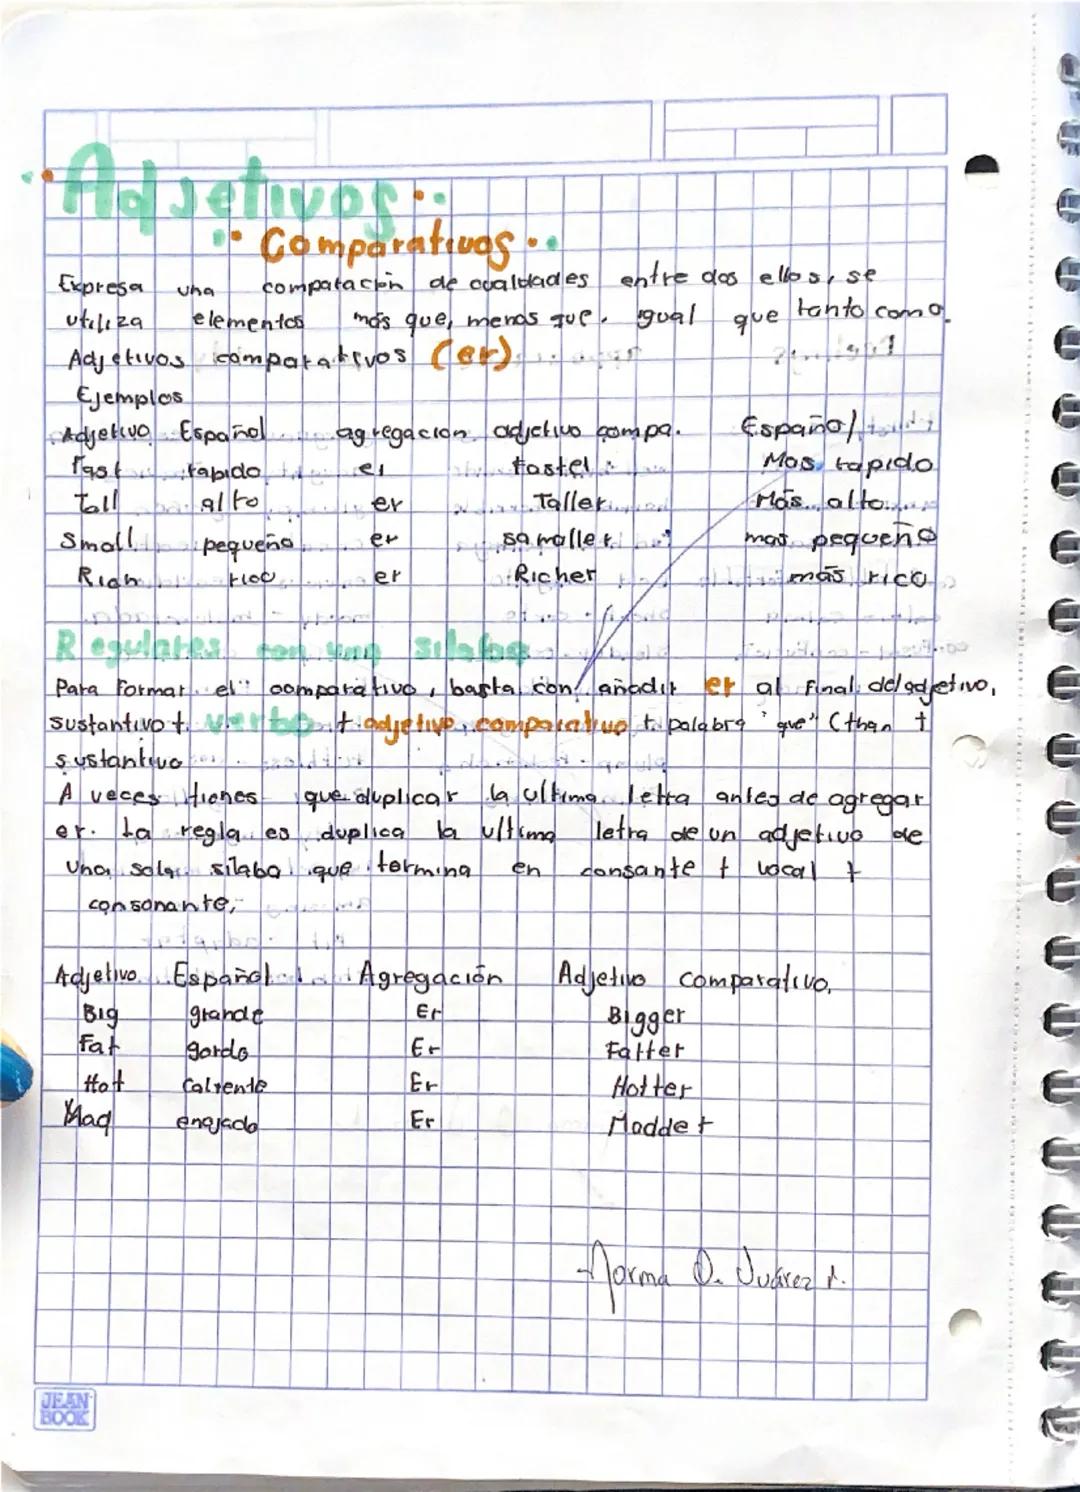 Adjetivos
Comparativos
Expresa una comparación de cualidades entre dos ellos, se
utiliza elementos más que, menos que. igual que tanto como.
Adjetivos comparativos (er)
Ejemplos
Adjetivo Español agregacion adjetivo compa. Español
Fast rapido er faster Mas rapido
Tall alto er Taller Más alto
Small pequeño er samaller mas pequeño
Rich rico er Richer más rico
Regulares con una silaba
Para formar el comparativo, basta con añadir er al final del adjetivo,
sustantivo + verbo + adjetivo comparativo + palabra "que" (than +
sustantivo
A veces tienes que duplicar la ultima letra antes de agregar
er. La regla es duplica la ultima letra de un adjetivo de
una sola silaba que termina en consante + vocal +
consonante,
Adjetivo Español Agregación Adjetivo comparativo,
Big grande Er Bigger
Fat gordo Er Fatter
Hot Caliente Er Hotter
Mad enojado Er Madder
Norma D. Juárez
JEAN
BOOK